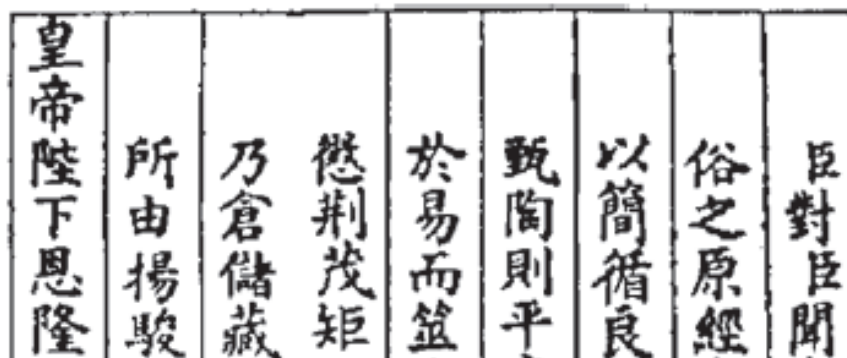 臣對臣聞
俗之原經
以簡循良
甄陶則平
於易而筮
懲荆茂矩
乃倉儲藏
所由揚駿
皇帝陛下恩隆